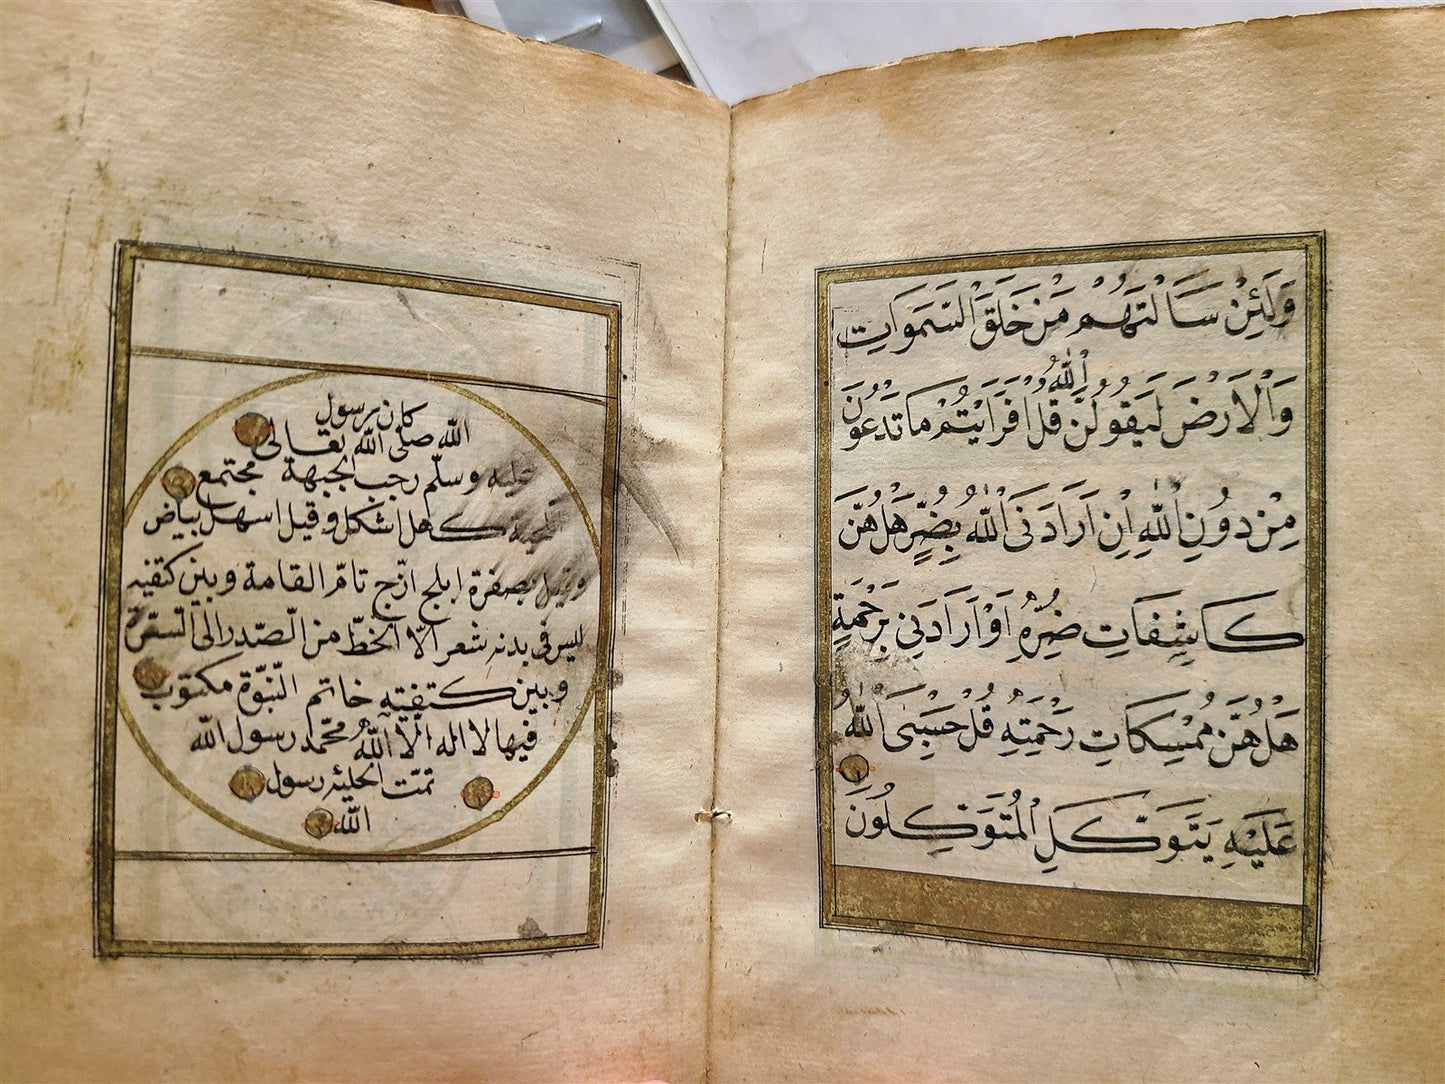 وَلَئِنْ سَاَلْتَهُمْ مَنْ خَلَقَ السَّمَوَاتِ
وَالْاَرْضَ لَيَقُولُنَّ اللّٰهُ قُلْ اَفَرَاَيْتُمْ مَا تَدْعُونَ
مِنْ دُونِ اللّٰهِ اِنْ اَرَادَنَىَ اللّٰهُ بِضُرٍّ هَلْ هُنَّ
كَاشِفَاتِ ضُرِّهِ اَوْ اَرَادَنِى بِرَحْمَةٍ
هَلْ هُنَّ مُمْسِكَاتِ رَحْمَتِهِ قُلْ حَسْبِىَ اللّٰهُ
عَلَيْهِ يَتَوَكَّلُ الْمُتَوَكِّلُونَ
كان رسول
الله صلى الله تعالى
عليه وسلّم رحب الجبهة مجتمع
كاهل اشكل وقيل اسهل بياض
وقيل بصفرة ابلج ازج تامّ القامة وبين كتفيه
ليس فى بدنه شعر الّا الخطّ من الصّدر الى السّرّة
وبين كتفيه خاتم النّبوّة مكتوب
فيها لا اله الّا اللّٰه محمّد رسول الله
تمّت الحلية رسول
الله